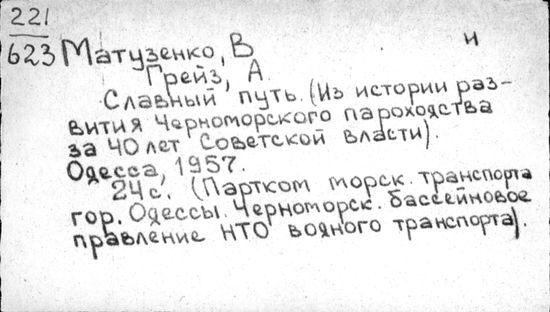 221
623 Матузенко, В и
Грейз, А.
Славный путь. (Из истории раз-
вития Черноморского пароходства
за 40 лет Советской власти).
Одесса, 1957.
24 с. (Партком морск. транспорта
гор. Одессы. Черноморск. бассейновое
правление НТО водного транспорта).